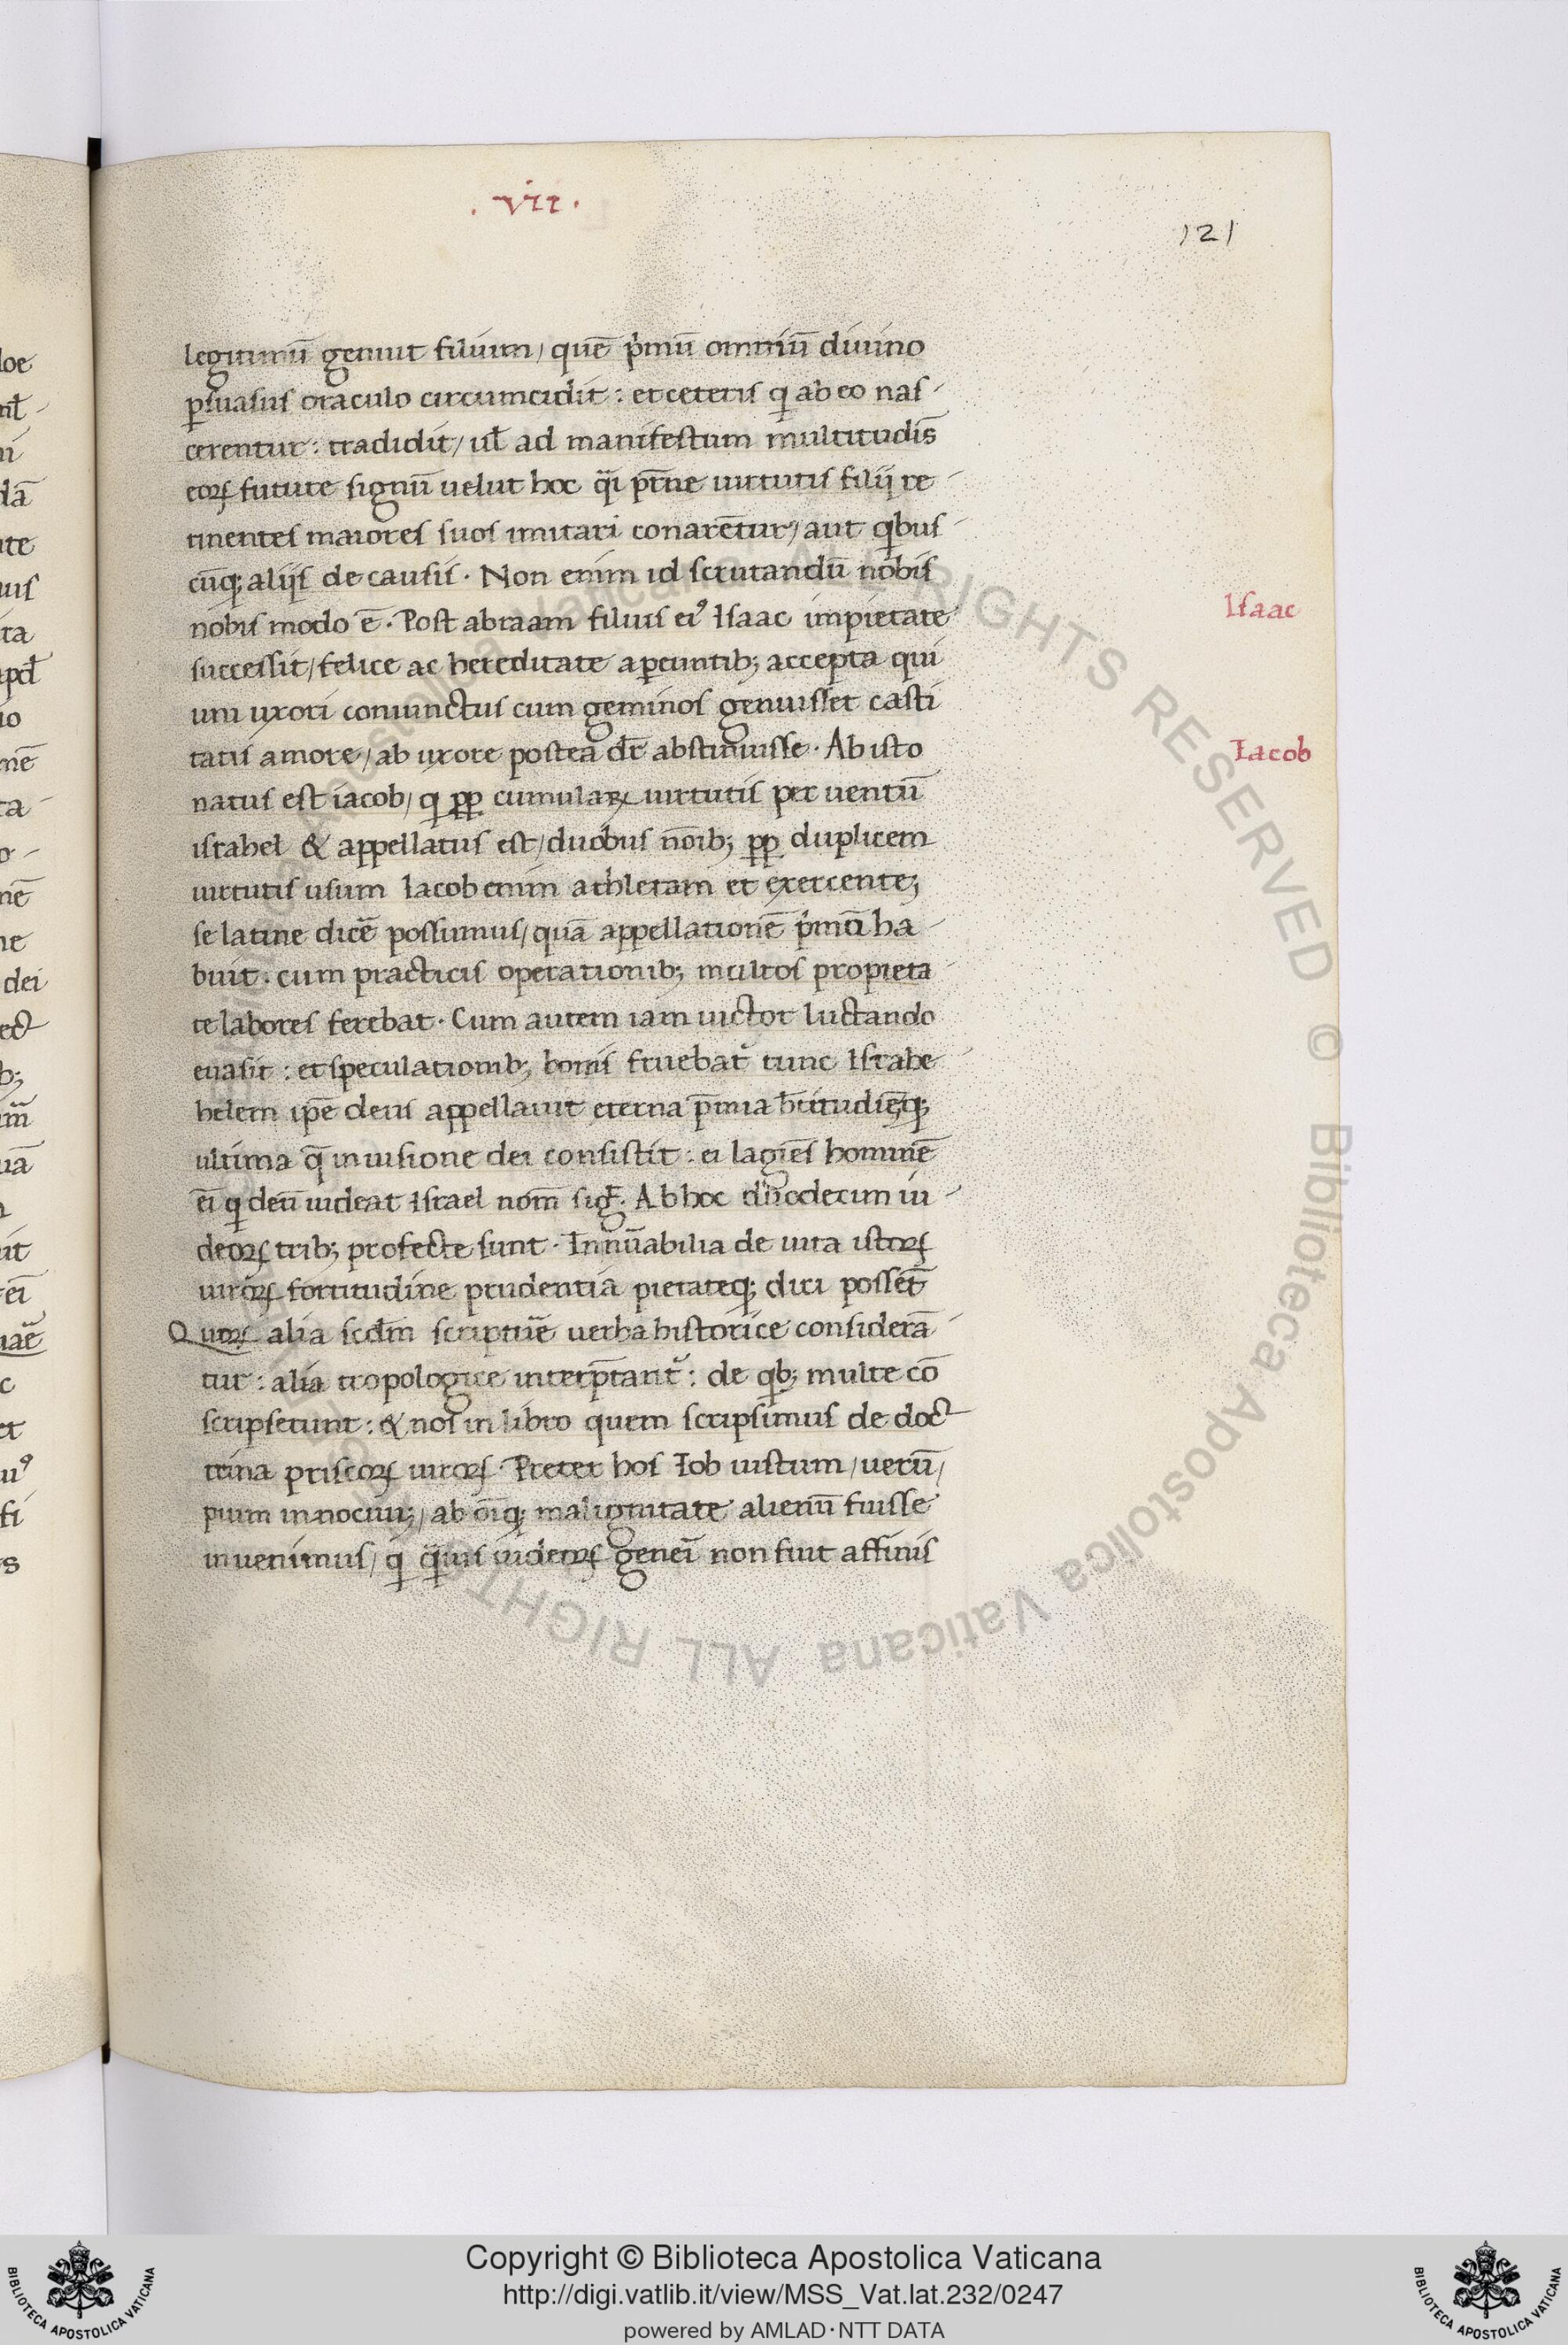 . vii .
121
legitimū genuit filium / quē p̍mū omniū diuino
p̱suasus oraculo circumcidit : et ceteris q̇ ab eo nas-
cerentur : tradidit / ul̄ ad manifestum multitudis̄
eoꝝ future signū uelut hoc q̇i pr̄ne uirtutis filij re-
tinentes maiores suos imitari conarētur / aut q̍bus-
cūqꝫ alijs de causis · Non enim id scrutandū nobis
nobis modo ē · Post abraam filius eiꝰ Isaac impietate
successit / felice ac hereditate a ꝑentibꝫ accepta qui
uni uxori coniunctus cum geminos genuisset casti
tatis amore / ab uxore postea dr̄ abstinuisse · Ab isto
natus est iacob / q̇ ꝓꝑ cumulaꝝ uirtutis per uentū
israhel & appellatus est / duobus noībꝫ ꝓꝑ duplicem
uirtutis usum Iacob enim athletam et exercenteꝫ
se latine dicē possumus / quā appellationē p̍mū ha-
buit · cum practicis operationibꝫ multos propieta-
te labores ferebat · Cum autem iam uictor luctando
euasit : et speculationibꝫ bonis fruebat᷑ tunc Israhe-
helem ipē deus appellauit eterna p̄mia b̄titudiēqꝫ
ultima q̄ in uisione dei consistit : ei lagiēs hominē
ei q̇ deū uideat Israel nom̄ sig̅t · Ab hoc duodecim iu-
deoꝝ tribꝫ profecte sunt · Innūabilia de uita istoꝝ
uiroꝝ fortitudine prudentia pietateqꝫ dici possēt
Quoꝝ alia scdm̄ scriptuē uerba historice considerā-
tur : alia tropologice interp̄tant᷑ : de q̍bꝫ multe cō
scripserunt : & nos in libro quem scripsimus de doc-
trina priscoꝝ uiroꝝ · Preter hos Iob iustum / uerū /
pium innocuuꝫ / ab oīqꝫ malignitate alienū fuisse
inuenimus / q̇ q̄uis iudeoꝝ genei᷑ non fuit affinis
Isaac
Iacob
loe
ni
dā
ite
uis
ita
apd̄
io
mē
ta-
o-
nē
ne
dei
ect
bꝫ
uā
it
ei
uāē
c
et
uꝰ
fi
s
ALL RIGHTS RESERVED © Biblioteca Apostolica Vaticana ALL RIGHT
Copyright © Biblioteca Apostolica Vaticana
http://digi.vatlib.it/view/MSS_Vat.lat.232/0247
powered by AMLAD·NTT DATA
BIBLIOTECA APOSTOLICA VATICANA
BIBLIOTECA APOSTOLICA VATICANA